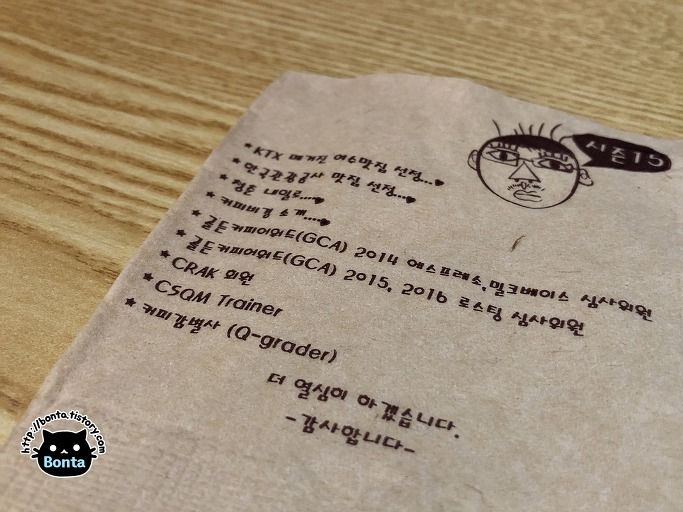 시즌15
* KTX 매거진 여수맛집 선정...♥
* 한국관광공사 맛집 선정...♥
* 청춘 내일로...♥
* 커피버킹 소개...♥
* 골든커피어워드(GCA) 2014 에스프레소,밀크베이스 심사위원
* 골든커피어워드(GCA) 2015, 2016 로스팅 심사위원
* CRAK 회원
* CSQM Trainer
* 커피감별사 (Q-grader)
더 열심히 하겠습니다.
-감사합니다-
http://bonta.tistory.com
Bonta